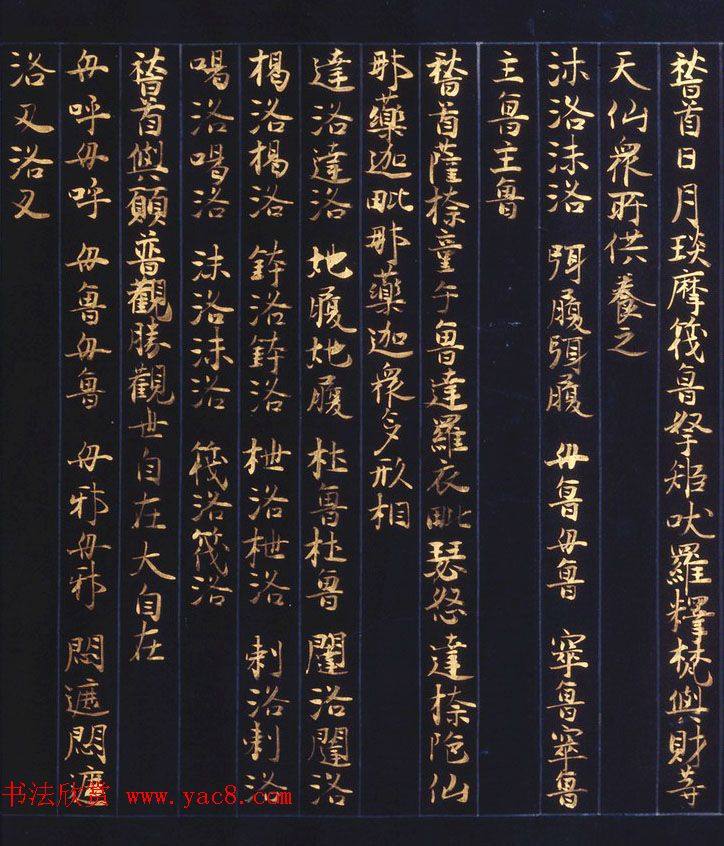 稽首日月琰摩筏魯拏矩吠羅釋梵與財等
天仙衆所供養之
沫洛沫洛 弭履弭履 母魯母魯 窣魯窣魯
主魯主魯
稽首薩捺童子魯達羅衣毗瑟怒達捺陁仙
那藥迦毗那藥迦衆多形相
達洛達洛 地履地履 杜魯杜魯 闥洛闥洛
楬洛楬洛 洛洛 枻洛枻洛 剌洛剌洛
喝洛喝洛 沫洛沫洛 筏洛筏洛
稽首與願普觀勝觀世自在大自在
母呼母呼 母魯母魯 母邪母邪 悶遮悶遮
洛叉洛叉
书法欣赏 www.yac8.com